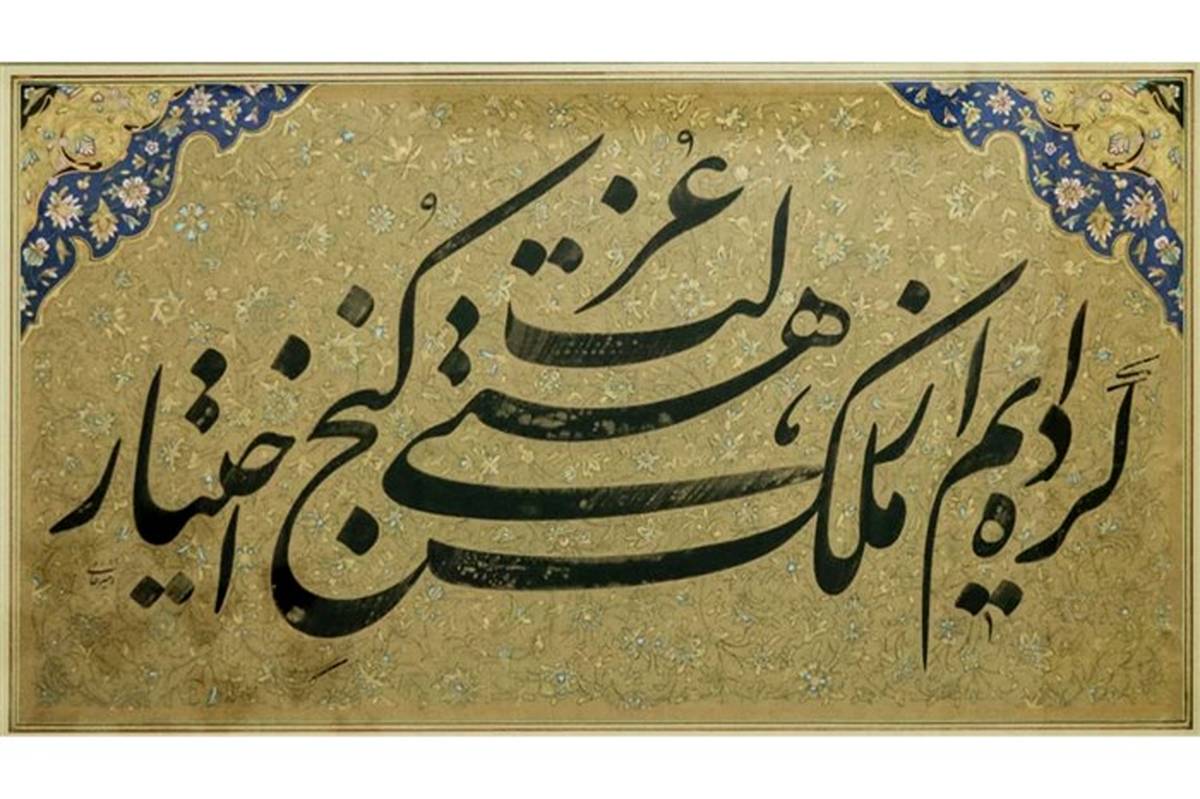 کرده‌ایم از ملک هستی کنج عزلت اختیار
امیرخانی